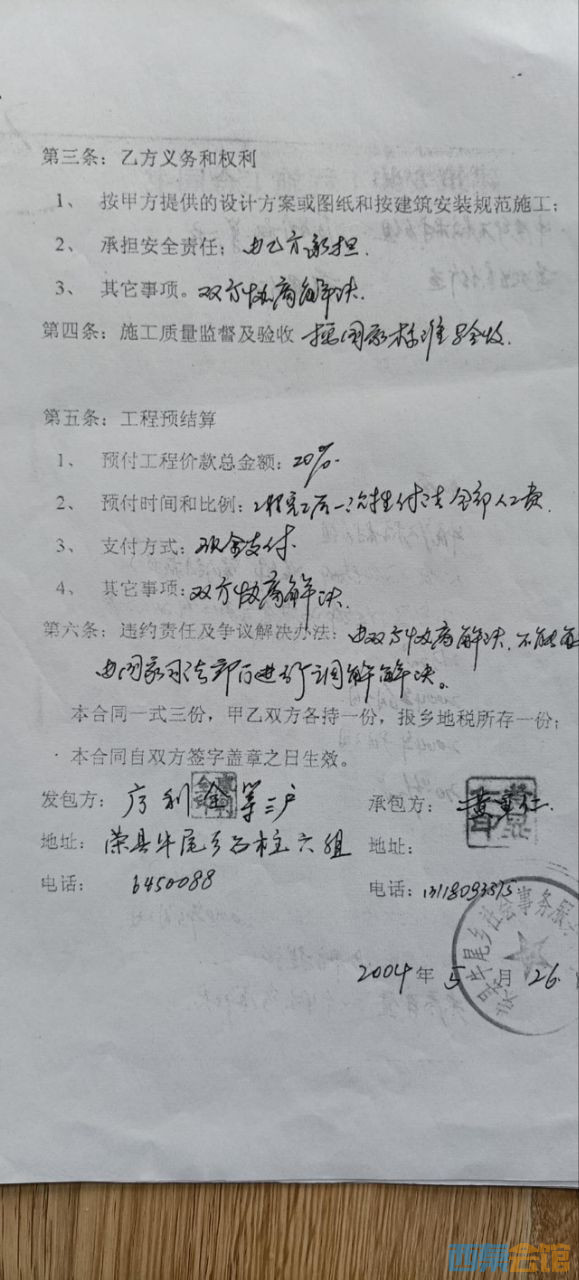 第三条：乙方义务和权利
1、 按甲方提供的设计方案或图纸和按建筑安装规范施工；
2、 承担安全责任；由乙方承担.
3、 其它事项。双方协商解决.
第四条：施工质量监督及验收 按国家标准验收.
第五条：工程预结算
1、 预付工程价款总金额：20%.
2、 预付时间和比例：工程完工后一次性付清全部人工费.
3、 支付方式：现金支付.
4、 其它事项：双方协商解决.
第六条：违约责任及争议解决办法：由双方协商解决.不能
由国家司法部门进行调解解决。
本合同一式三份，甲乙双方各持一份，报乡地税所存一份；
本合同自双方签字盖章之日生效。
发包方： 利金等三户 承包方：黄 仁
地址：荣县牛尾乡石柱六组 地址：
电话： 6450088 电话：
2004年5月26
牛尾乡社会事务服
西帛会馆